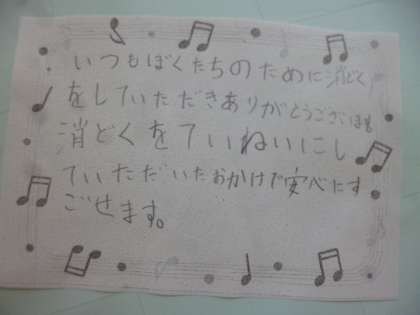 いつもぼくたちのために消どく
をしていただきありがとうございます
消どくをていねいにし
ていただいたおかげで安べにす
ごせます。